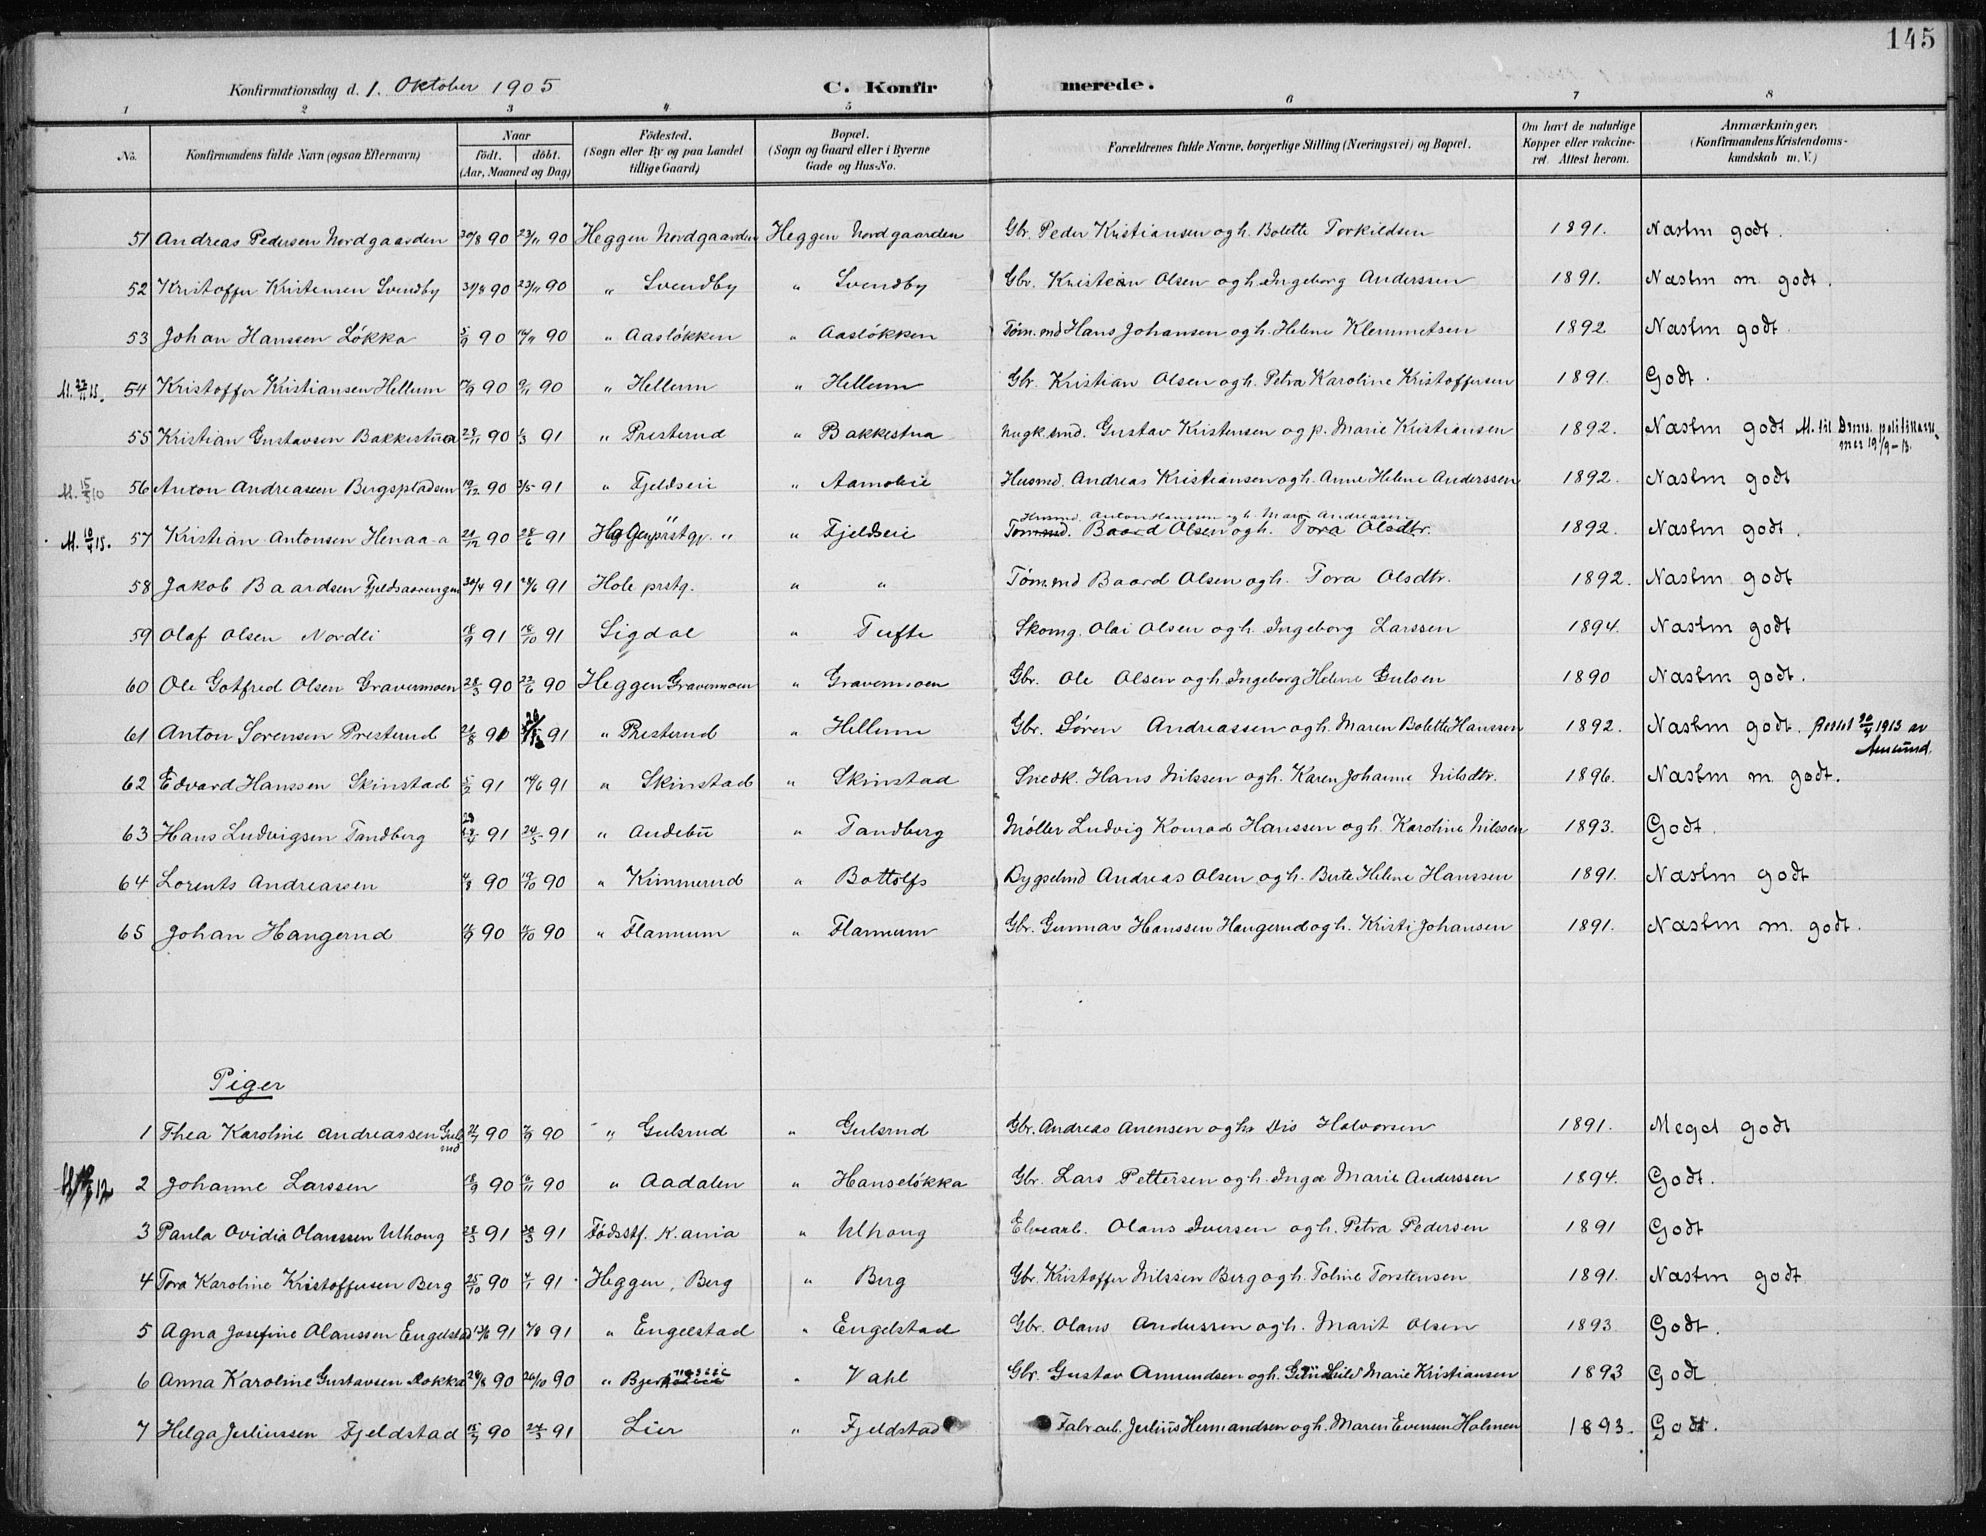 145
Konfirmationsdag d. 1. Oktober 1905 C. Konfir merede.
1 2 3 4 5 6 7 8
No. Konfirmandens fulde Navn (ogsaa Efternavn) Naar födt. döbt. (Aar, Maaned og Dag) Födested. (Sogn eller By og paa Landet tillige Gaard) Bopæl. (Sogn og Gaard eller i Byerne Gade og Hus-No. Forældrenes fulde Navne, borgerlige Stilling (Næringsvei) og Bopæl. Om havt de naturlige Kopper eller vakcineret. Attest herom. Anmærkninger. (Konfirmandens Kristendomskundskab m. V.)
51 Andreas Pedersen Nordgaarden 30/8 90 23/11 90 Heggen Nordgaarden Heggen Nordgaarden Gbr. Peder Kristiansen og h. Bolette Torkildsen 1891. Næstm godt.
52 Kristoffer Kristensen Svendby 90 23/11 90 " Svendby " Svendby Gbr. Kristian Olsen og h. Ingeborg Anderssen 1891. Næstm m. godt.
53 Johan Hanssen Løkka 90 16/11 90 " Aasløkken " Aasløkken Tøm.md Hans Johansen og h. Helene Klemmetsen 1892 Næstm godt.
54 Kristoffer Kristiansen Hellum 90 9/11 90 " Hellum " Hellum Gbr. Kristian Olsen og h. Petra Karoline Kristoffersen 1891. Godt.
55 Kristian Gustavsen Bakkestua 90 1/3 91 " Presterud " Bakkestua ungk.smd. Gustav Kristensen og p. Marie Kristiansen 1892. Næstm godt M. til 19/9-13.
M. 15/3 10 56 Anton Andreassen Bergspladsen 19/12 90 3/5 91 " Fjeldseie " Aamoteie Husmd. Andreas Kristiansen og h. Anne Helene Anderssen 1892. Næstm godt
57 Kristian Antonsen Henaa-a 90 28/6 91 " Fjeldseie Husmd. Anton Hanssen og h. Mari Andreasen
Tømmd. Baard Olsen og h. Tora Olsdtr. 1892. Næstm godt.
58 Jakob Baardsen Fjeldsaarengen 30/4 91 28/6 91 Hole prstg. " " Tøm.md Baard Olsen og h. Tora Olsdtr. 1892. Næstm godt
59 Olaf Olsen Nordli 18/9 91 18/10 91 Sigdal " Tufte Skomg. Olai Olsen og h. Ingeborg Larssen 1894. Næstm godt
60 Ole Gotfred Olsen Gravermoen 28/3 90 22/6 90 Heggen Gravermoen " Gravermoen Gbr. Ole Olsen og h. Ingeborg Helene Gulsen 1890 Næstm godt.
61 Anton Sørensen Presterud 91 91 " Presterud " Hellum Gbr. Søren Andreassen og h. Maren Bolette Hanssen 1892. Næstm godt. 1913 av
62 Edvard Hanssen Skinstad 5/2 91 91 " Skinstad " Skinstad Snedk. Hans Nilssen og h. Karen Johanne Nilsdtr. 1896. Næstm m. godt.
63 Hans Ludvigsen Tandberg 91 24/5 91 " Andebu " Tandberg Møller Ludvig Konrad Hanssen og h. Karoline Nilssen 1893. Godt.
64 Lorents Andreassen 4/8 90 19/10 90 " Kimmerud " Bottolfs Bygselmd Andreas Olsen og h. Berte Helene Hanssen 1891. Næstm godt
65 Johan Haugerud 90 90 " Flannum " Flannum Gbr. Gunnar Hanssen Haugerud og h. Kristi Johansen 1891. Næstm m. godt.
Piger
1 Thea Karoline Andreassen Gulsrud 90 7/9 90 " Gulsrud " Gulsrud Gbr. Andreas Arensen og h. Dis Halvorsen 1891. Meget godt
2 Johanne Larssen 18/9 90 16/11 90 " Aadalen " Hanseløkka Gbr. Lars Pettersen og h. Inga Marie Anderssen 1894. Godt.
3 Paula Ovidia Olanssen Ulhoug 91 91 Fødsstf. K.ania " Ulhoug Elvearb. Olaus Iversen og h. Petra Pedersen 1891 Godt
4 Tora Karoline Kristoffersen Berg 25/10 90 4/1 91 Heggen, Berg " Berg Gbr. Kristoffer Nilssen Berg og h. Toline Torstensen 1891. Næstm godt
5 Agna Josefine Olanssen Engelstad 91 7/8 91 " Engelstad " Engelstad Gbr. Olaus Anderssen og h. Marit Olsen 1893 Godt.
6 Anna Karoline Gustavsen Løkka 90 26/10 90 " " Vahl Gbr. Gustav Amundsen og h. Gunhild Marie Kristiansen 1893 Godt
7 Helga Juliussen Fjeldstad 90 91 Lier " Fjeldstad Fabrarb. Julius Hermandsen og h. Maren Evensen Holmen 1893. Godt.